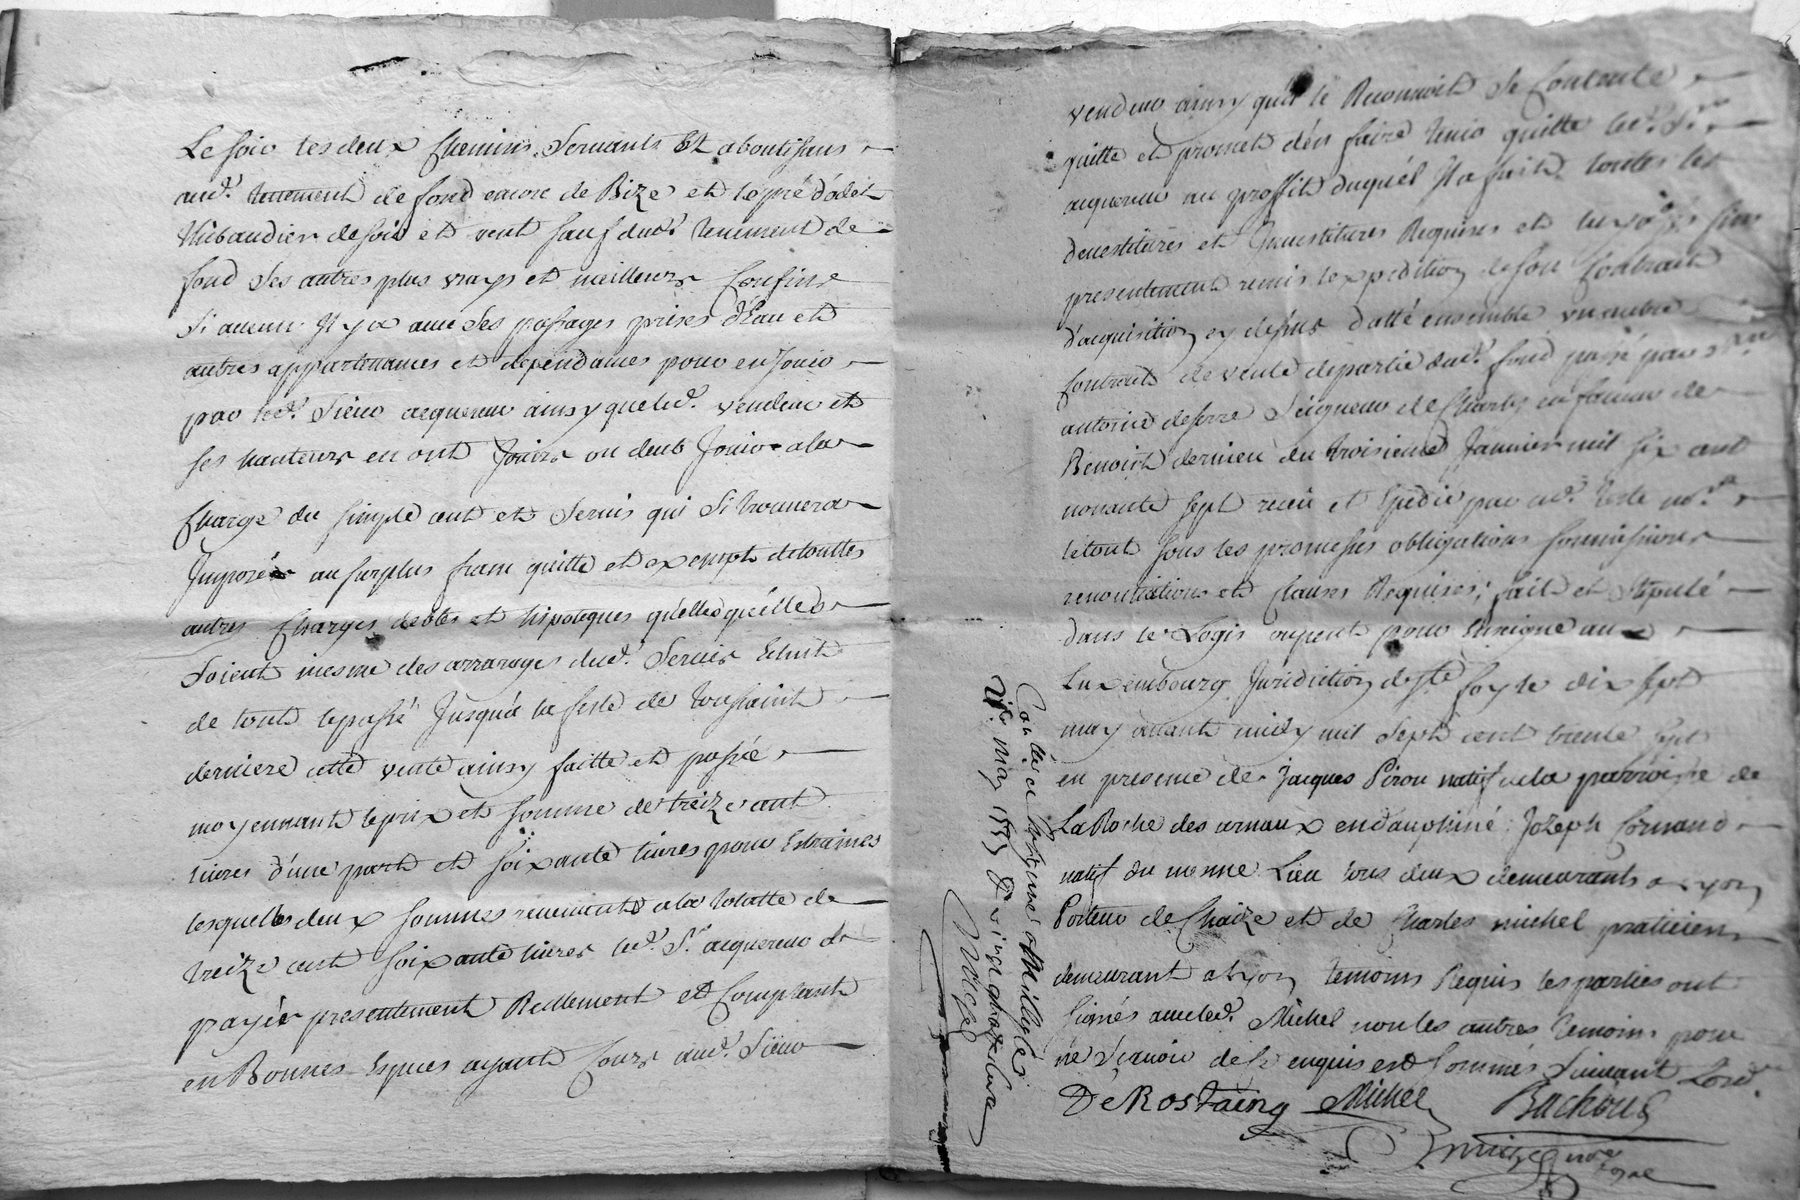 Le soir les deux chemins servants et aboutissans
aud. tenement de fond encore de Bize et le pré d'odet
Thibaudier de soir et vent sauf dud. tenement de
fond ses autres plus vrays et meilleurs confins
si aucun il y a avec ses passages prises d'Eau et
autres appartenances et dependances pour en Jouir
par led. Sieur acquereur ainsy que led. vendeur et
ses hauteurs en ont Jouir ou deub Jouir a la
charge du simple cent et servis qui si trouvera
Imposée au surplus franc quitte et exempt de touttes
autres charges debtes et hipoteques quelles quelles
soient mesme des arrarages dud. servis Echut
de tout le passé Jusqu'a la feste de toussaint
derniere cette vente ainsy faitte et passée
moyennant le prix et somme de treize cent
livres d'une part et soixante livres pour Estraines
lesquelles deux sommes reviennent a la totalle de
treize cent soixante livres led. Sr acquereur a
payée presentement Reellement et Comptant
en Bonnes Especes ayant Cours aud. Sieur
vendeur ainsy quil le Reconnoit se Contente
quitte et promet d'en faire tenir quitte led. Sr
acquereur au proffit duquel Il a fait toutes les
devestitures et Investitures Requises et luy a
presentement remis l'expedition de son Contract
d'acquisition cy dessus datté ensemble un autre
Contract de vente de partie dud. fond passé par
antoine de serre Seigneur de Charly en faveur de
Benoist dernieu du troisieme Janvier mil six cent
nonante sept receu et Expedié par
le tout sous les promesses obligations soumissions
renontiations et clauses Requises; fait et stipulé
dans le Logis ayent pour Enseigne au
Luxembourg Juridiction de ste foy le dix sept
may avant midy mil sept cent trente sept
en presence de Jacques Pirou natif de la parroisse de
La Roche des arnaux en dauphiné Jozeph Cornand
natif du mesme Lieu tous deux demeurants a Lyon
Porteur de Chaize et de Charles michel praticien
demeurant a Lyon temoins Requis les parties ont
signés avec led. Michel non les autres temoins pour
ne sçavoir de ce enquis et sommés suivant Lord.
De Rostaing Michel Bachoud
Con lé et
may 1737